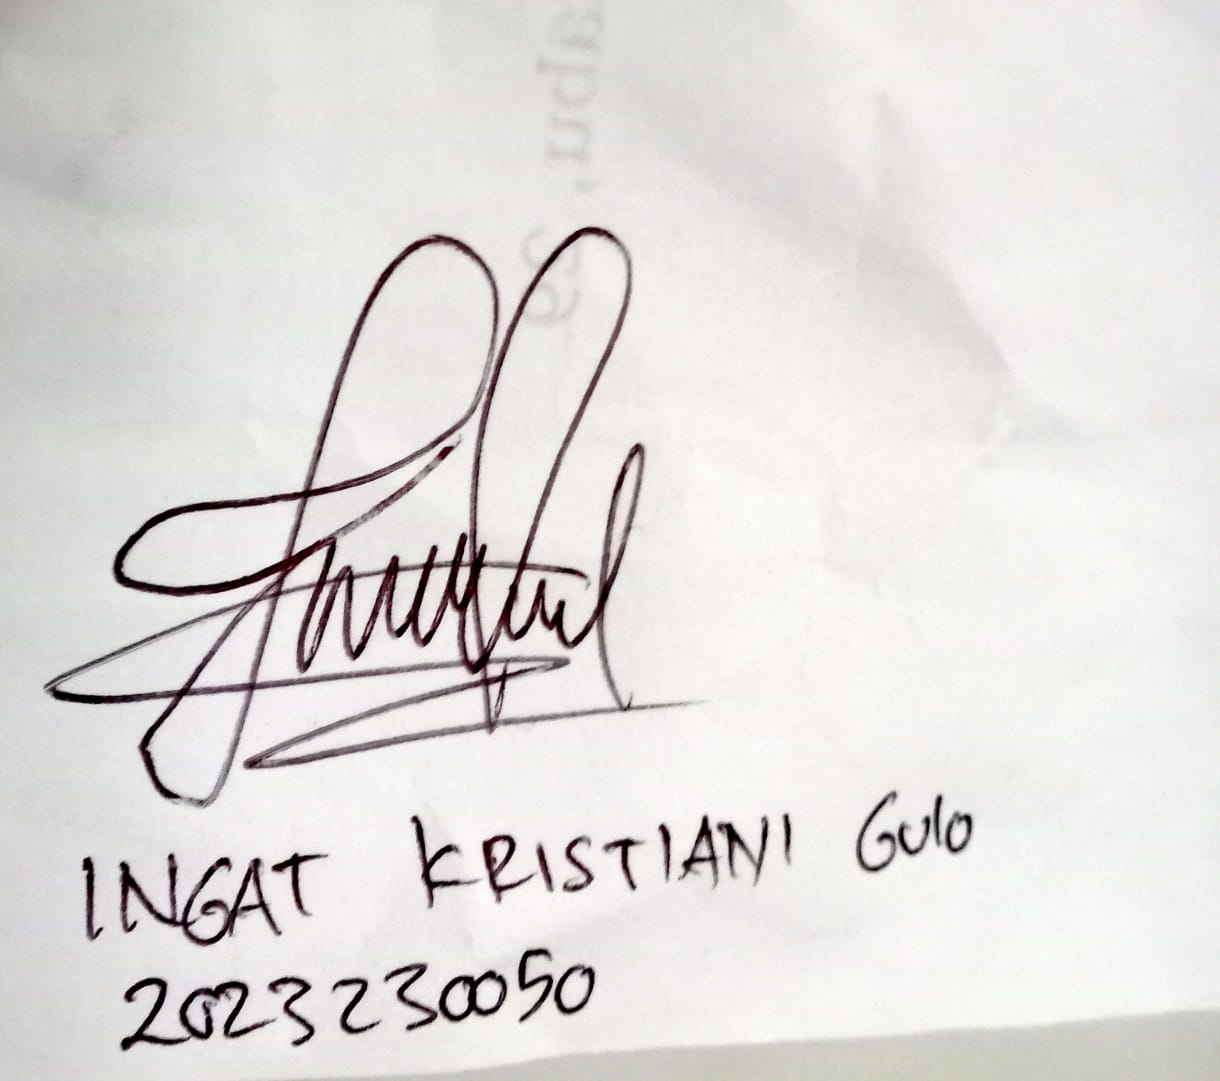 INGAT KRISTIANI Gulo
2023230050